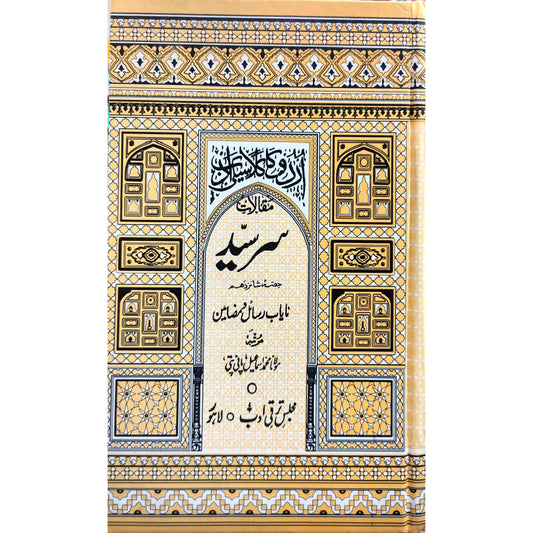 اردو کا کلاسیکی ادب
مقالات
سرسیّد
حصہ شانزدهم
نایاب رسائل و مضامین
مرتبہ
مولانا محمد اسماعیل پانی پتی
مجلس ترقی ادب ○ لاہور